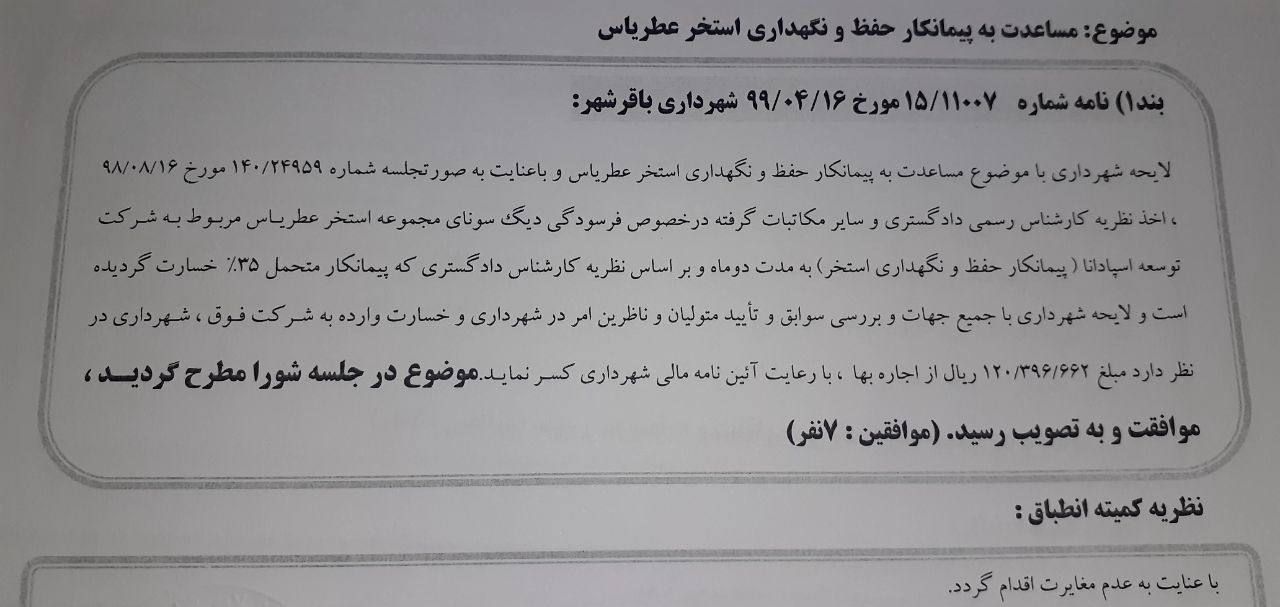 موضوع: مساعدت به پیمانکار حفظ و نگهداری استخر عطریاس
بند۱) نامه شماره ۱۵/۱۱۰۰۷ مورخ ۹۹/۰۴/۱۶ شهرداری باقرشهر:
لایحه شهرداری با موضوع مساعدت به پیمانکار حفظ و نگهداری استخر عطریاس و باعنایت به صورتجلسه شماره ۱۴۰/۲۴۹۵۹ مورخ ۹۸/۰۸/۱۶
، اخذ نظریه کارشناس رسمی دادگستری و سایر مکاتبات گرفته درخصوص فرسودگی دیگ سونای مجموعه استخر عطریاس مربوط به شرکت
توسعه اسپادانا ( پیمانکار حفظ و نگهداری استخر) به مدت دوماه و بر اساس نظریه کارشناس دادگستری که پیمانکار متحمل ۳۵٪ خسارت گردیده
است و لایحه شهرداری با جمیع جهات و بررسی سوابق و تأیید متولیان و ناظرین امر در شهرداری و خسارت وارده به شرکت فوق ، شهرداری در
نظر دارد مبلغ ۱۲۰/۳۹۶/۶۶۲ ریال از اجاره بها ، با رعایت آئین نامه مالی شهرداری کسر نماید.موضوع در جلسه شورا مطرح گردید ،
موافقت و به تصویب رسید. (موافقین : ۷نفر)
نظریه کمیته انطباق :
با عنایت به عدم مغایرت اقدام گردد.